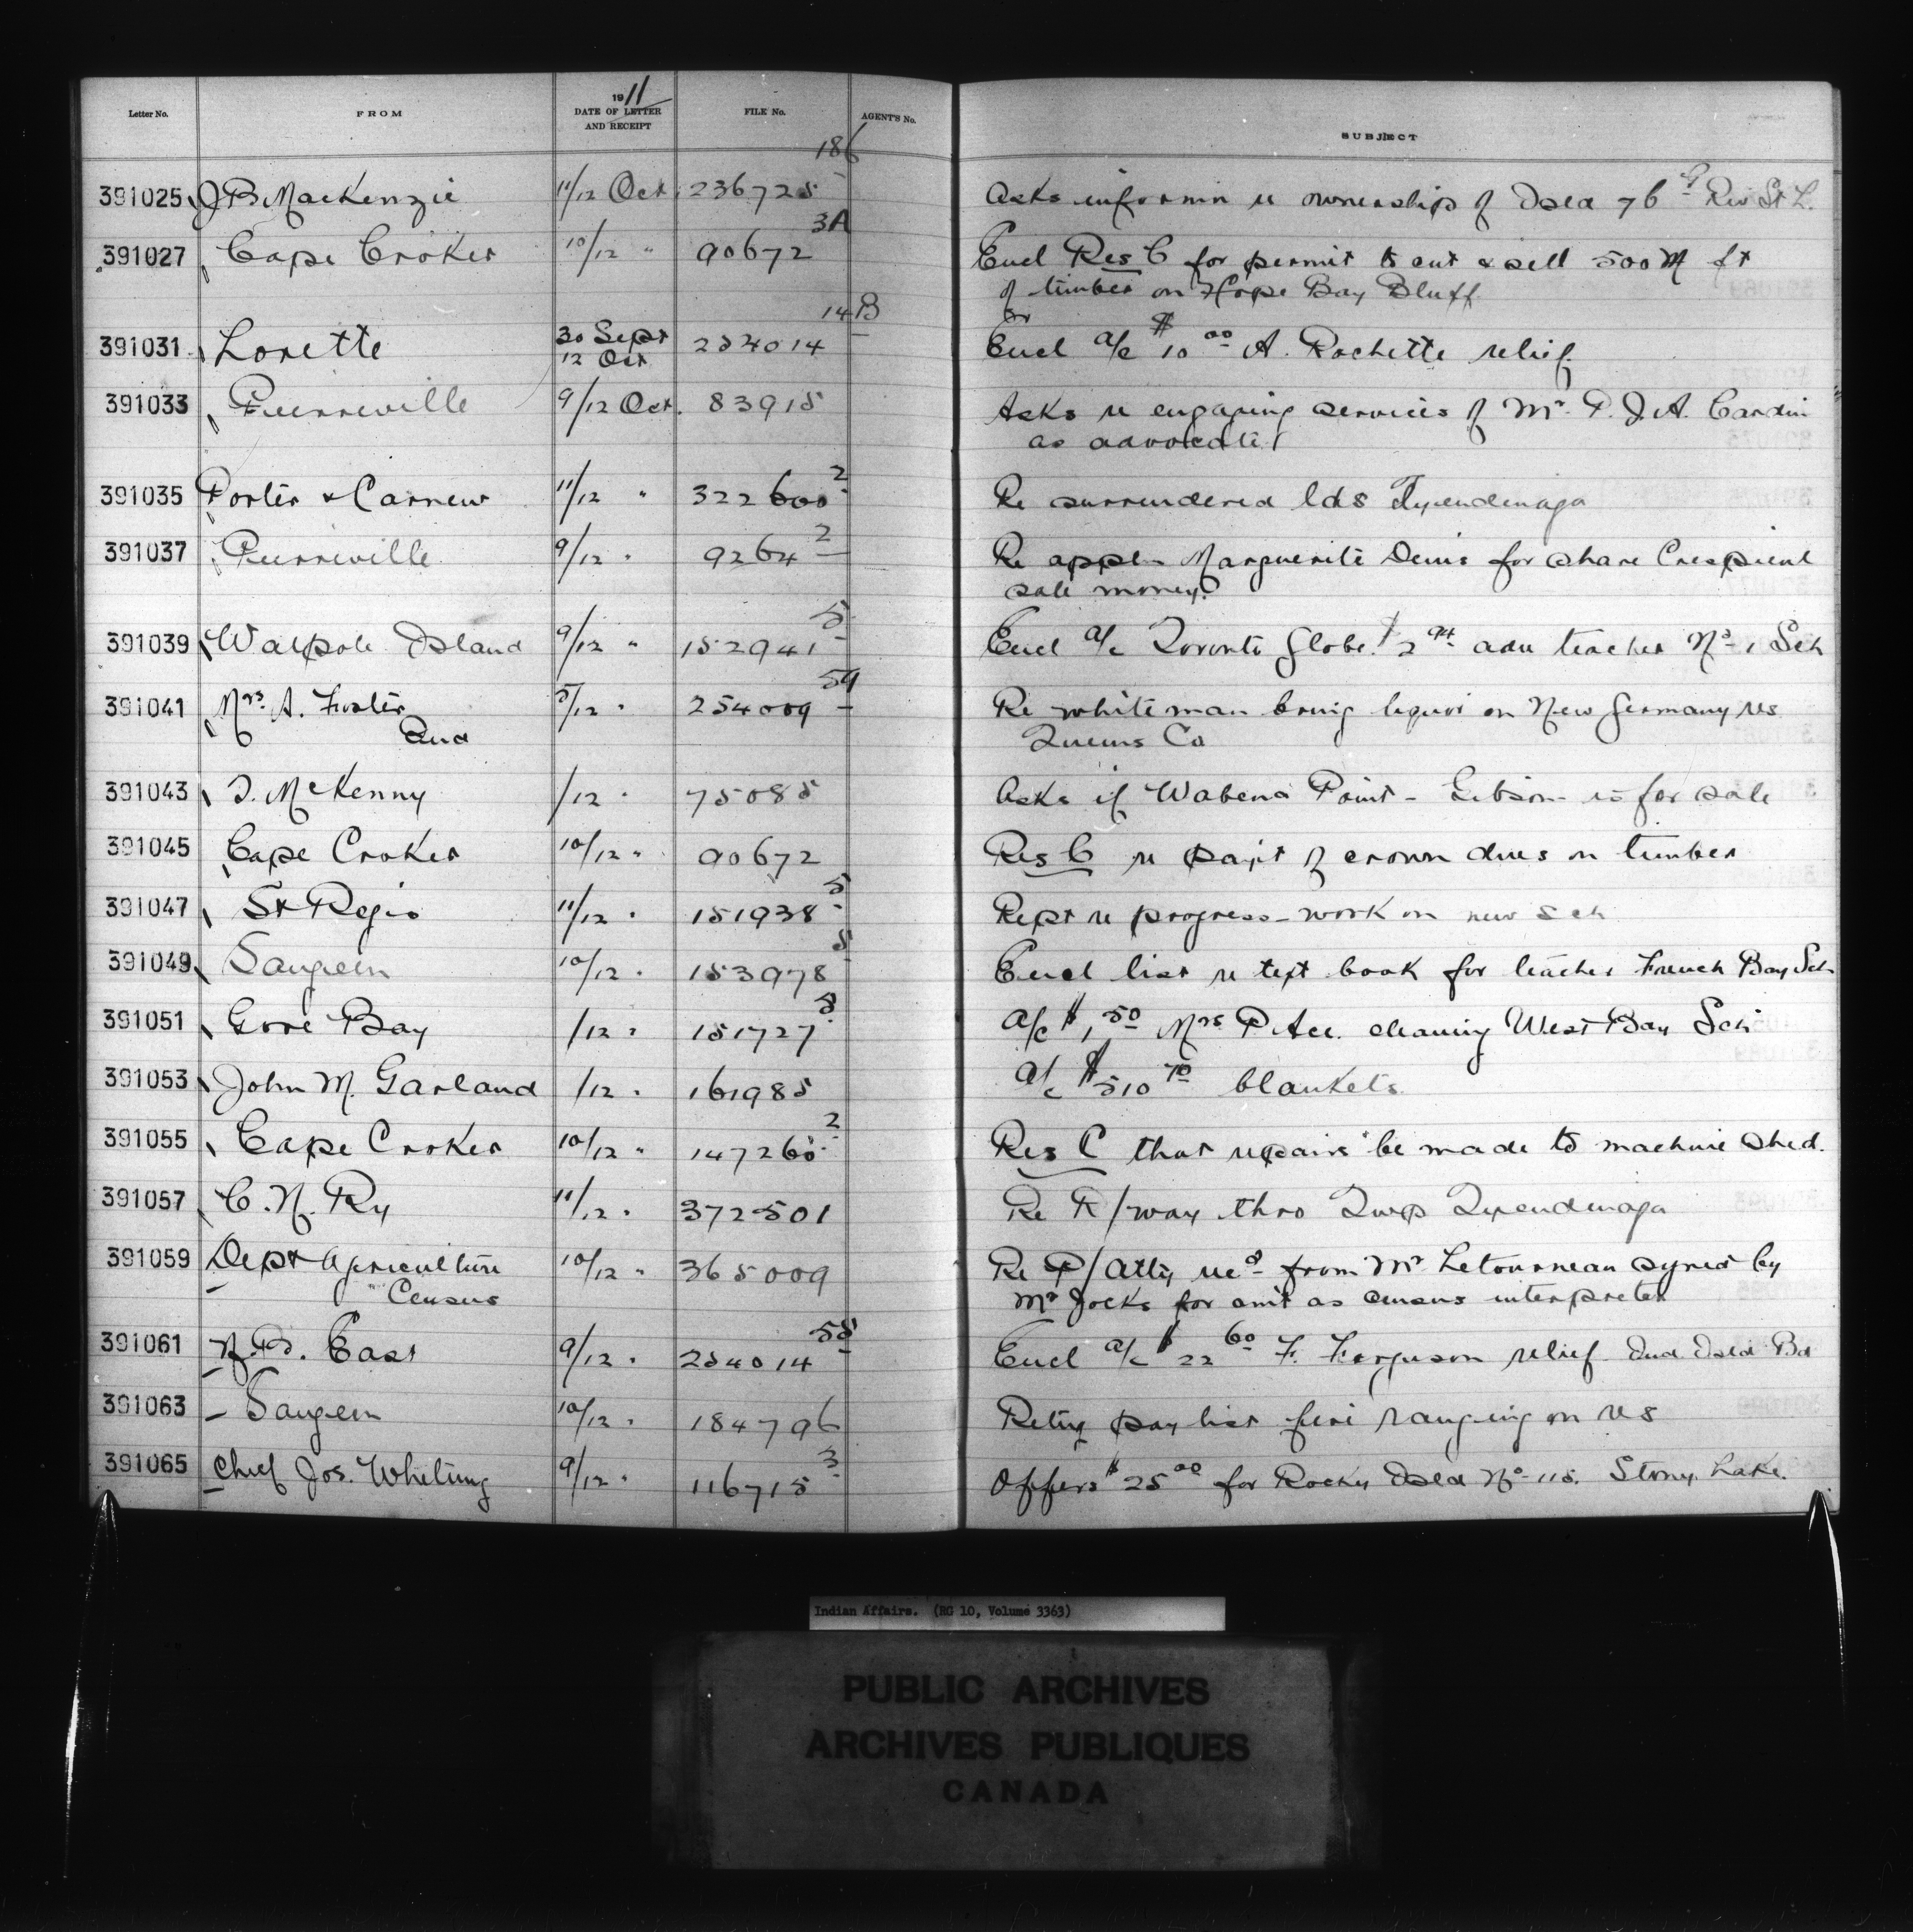 Letter No. FROM 1911 DATE OF LETTER AND RECEIPT FILE No. AGENT'S No. SUBJECT
186
391025 J B MacKenzie 11/12 Oct 236725 Asks informn re ownership of Isld 76 G Riv St L.
3A
391027 Cape Croker 10/12 " 90672 Encl Res C for permit to cut & sell 500 M ft
of timber on Hope Bay Bluff
14B
391031 Lorette 30 Sept 12 Oct 254014 Encl a/c $10 00 A. Rochette relief
391033 Pierreville 9/12 Oct. 83915 Asks re engaging services of Mr. P. J. A. Cardin
as advocate
391035 Porter & Carnew 11/12 " 322600 2 Re surrendered lds Tyendinaga
391037 Pierreville 9/12 " 9264 2 Re appln Marguerite Denis for share Crespieul
sale money
391039 Walpole Island 9/12 " 152941 5 Encl a/c Toronto Globe $2 adv teacher No 1 Sch
391041 Mrs. A. Foster 5/12 " 254009 54 Re white man bring liquor on New Germany res
Queens Co
391043 T. McKenny /12 " 75085 Asks if Wabena Point - Gibson - is for sale
391045 Cape Croker 10/12 " 90672 Res C re pay't of crown dues on timber
391047 St Regis 11/12 " 151938 5 Rept re progress - work on new Sch
391049 Saugeen 10/12 " 153978 5 Encl list re text book for teacher French Bay Sch
391051 Gore Bay /12 " 151727 5 a/c $1 50 Mrs P. cleaning West Bay Sch
391053 John M. Garland /12 " 161985 a/c $510 70 blankets
391055 Cape Croker 10/12 " 147260 2 Res C that repairs be made to machine shed.
391057 C. N. Ry 11/12 " 372501 Re R/way thro Twp Tyendinaga
391059 Dept Agriculture 10/12 " 365009 Re P/Atty recd from Mr Letourneau signed by
" Census Mr Jocks for amt as census interpreter
391061 N. T. East 9/12 " 254014 55 Encl a/c $22 60 F. Ferguson relief Ind Isld Bd
391063 Saugeen 10/12 " 184796 Retng pay list fire ranging on res
391065 Chief Jos. Whetung 9/12 " 116715 3 Offers $25 00 for Rocky Isld No 115. Stony Lake.
Indian Affairs. (RG 10, Volume 3363)
PUBLIC ARCHIVES
ARCHIVES PUBLIQUES
CANADA